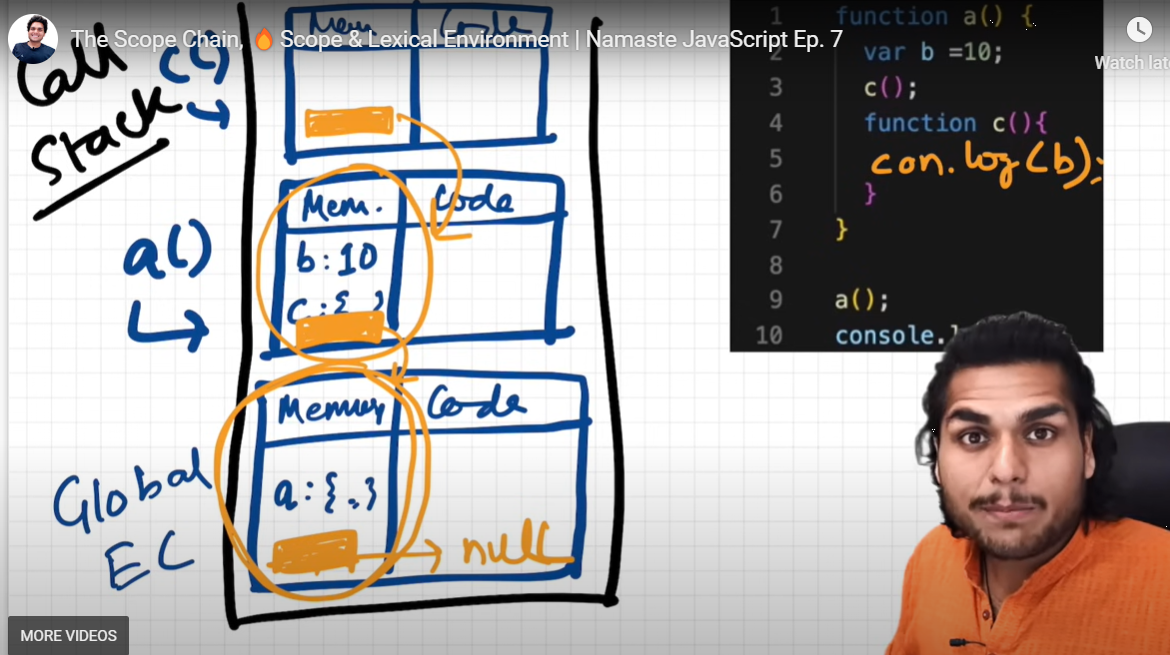 The Scope Chain, 🔥 Scope & Lexical Environment | Namaste JavaScript Ep. 7
Watch late
Call
Stack
c()
Mem. Code
a()
Mem. Code
b : 10
c : {
Global
EC
Memory Code
a : { . }
null
1 function a() {
2 var b =10;
3 c();
4 function c(){
5 con.log(b);
6 }
7 }
8
9 a();
10 console.
MORE VIDEOS